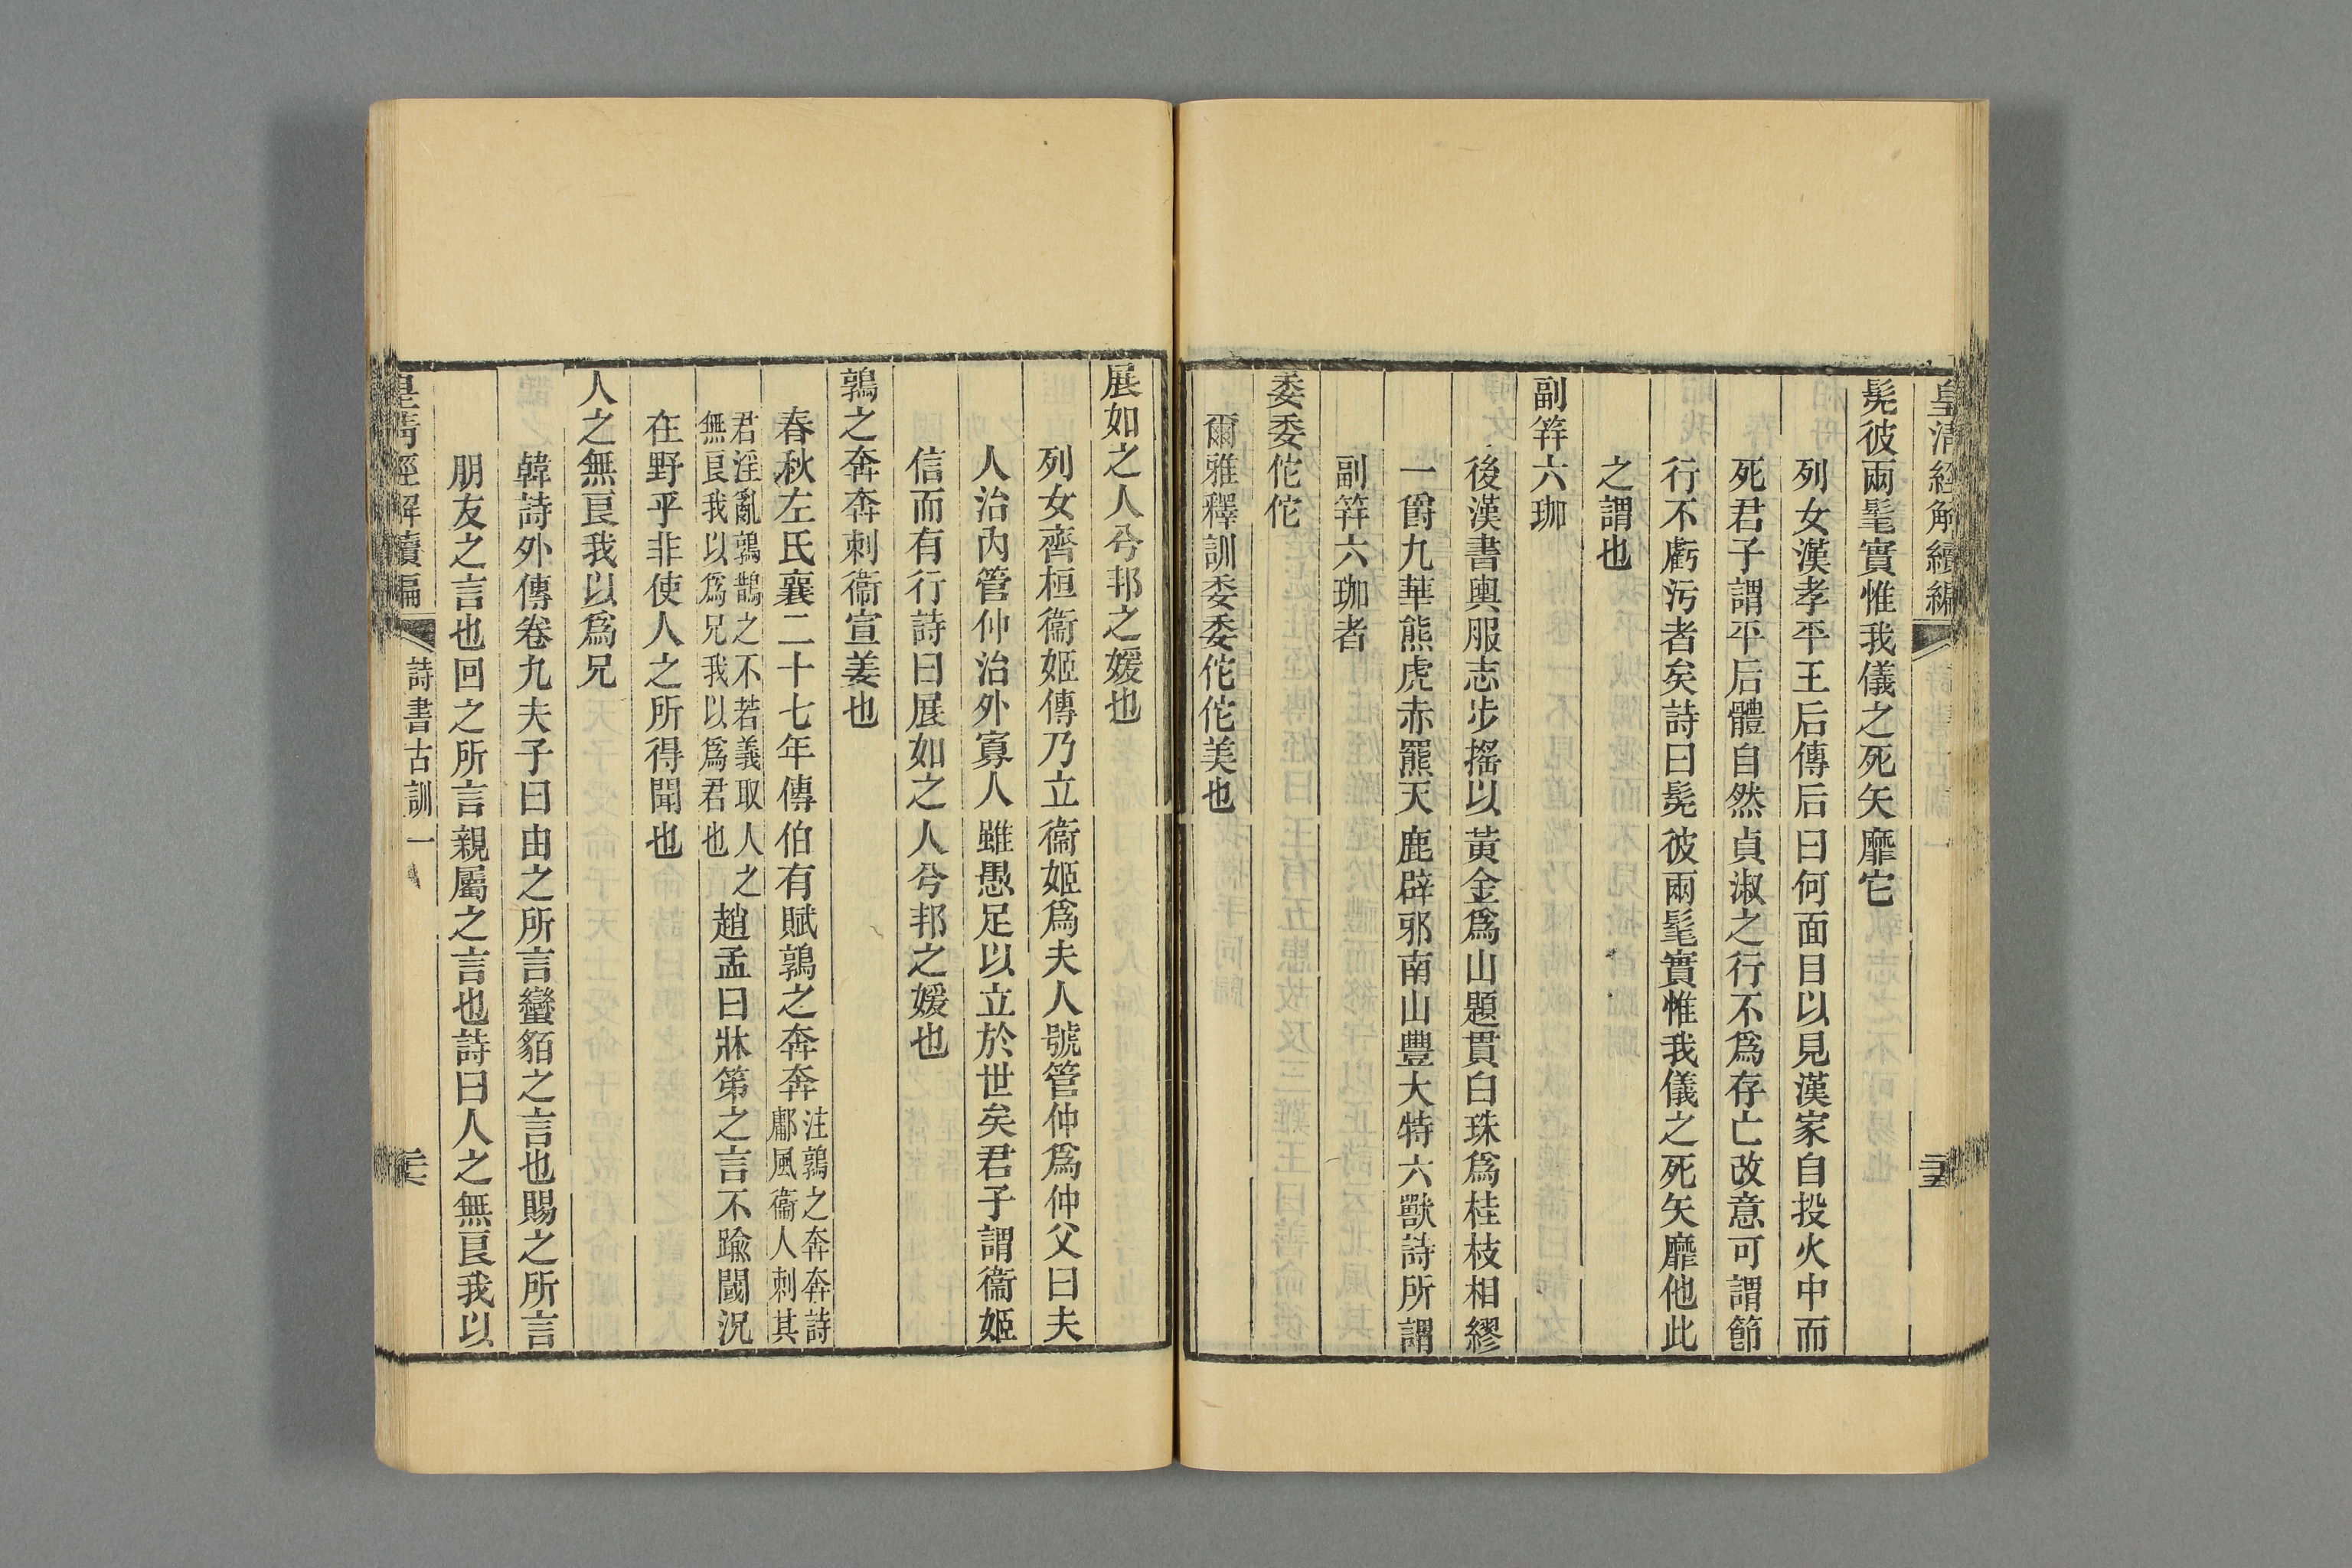 皇清經解續編
髧彼兩髦實惟我儀之死矢靡它
列女漢孝平王后傳后曰何面目以見漢家自投火中而
死君子謂平后體自然貞淑之行不爲存亡改意可謂節
行不虧污者矣詩曰髧彼兩髦實惟我儀之死矢靡他此
之謂也
副笄六珈
後漢書輿服志步搖以黃金爲山題貫白珠爲桂枝相繆
一爵九華熊虎赤羆天鹿辟邪南山豐大特六獸詩所謂
副笄六珈者
委委佗佗
爾雅釋訓委委佗佗美也
展如之人兮邦之媛也
列女齊桓衞姬傳乃立衞姬爲夫人號管仲爲仲父曰夫
人治內管仲治外寡人雖愚足以立於世矣君子謂衞姬
信而有行詩曰展如之人兮邦之媛也
鶉之奔奔刺衞宣姜也
春秋左氏襄二十七年傳伯有賦鶉之奔奔注鶉之奔奔詩鄘風衞人刺其
君淫亂鶉鵲之不若義取人之無良我以爲兄我以爲君也趙孟曰牀第之言不踰閾況
在野乎非使人之所得聞也
人之無良我以爲兄
韓詩外傳卷九夫子曰由之所言蠻貊之言也賜之所言
朋友之言也回之所言親屬之言也詩曰人之無良我以
皇清經解續編 詩書古訓一